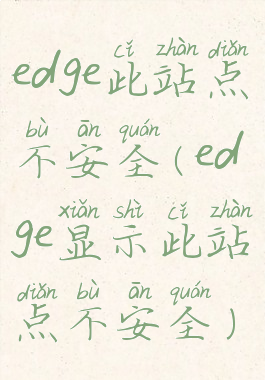 cǐ zhàn diǎn
edge此站点
bù ān quán
不安全(ed
xiǎn shì cǐ zhàn
ge显示此站
diǎn bù ān quán
点不安全)